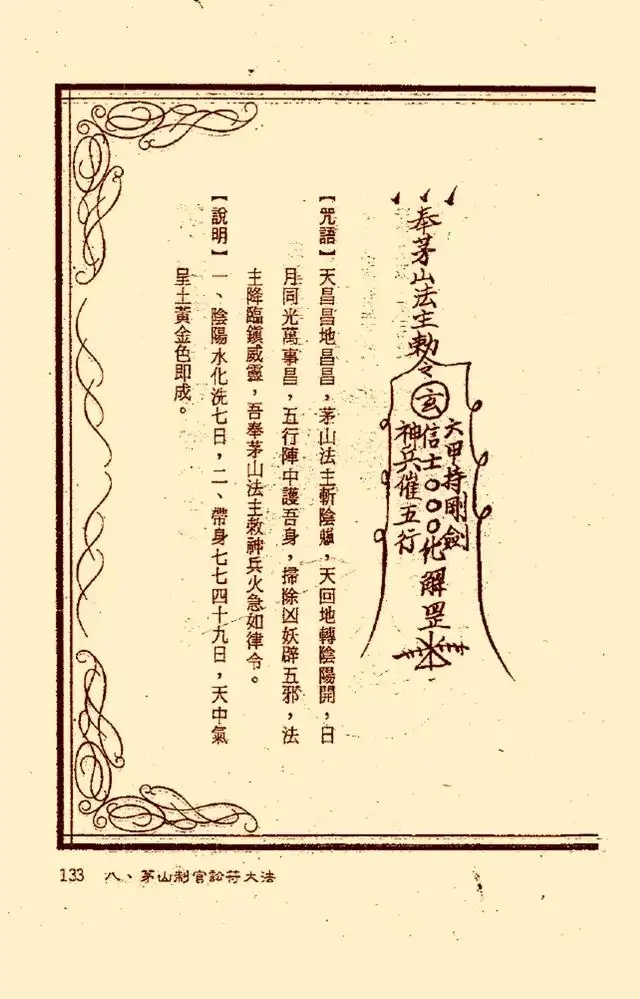 奉茅山法主勅令
玄
六甲持剛劍
信士○○○化解罡
神兵催五行
【咒語】天昌昌地昌昌，茅山法主斬陰，天回地轉陰陽開，日
月同光萬事昌，五行陣中護吾身，掃除凶妖辟五邪，法
主降臨鎮威靈，吾奉茅山法主敕神兵火急如律令。
【說明】一、陰陽水化洗七日，二、帶身七七四十九日，天中氣
呈土黃金色即成。
133 八、茅山制官訟符大法